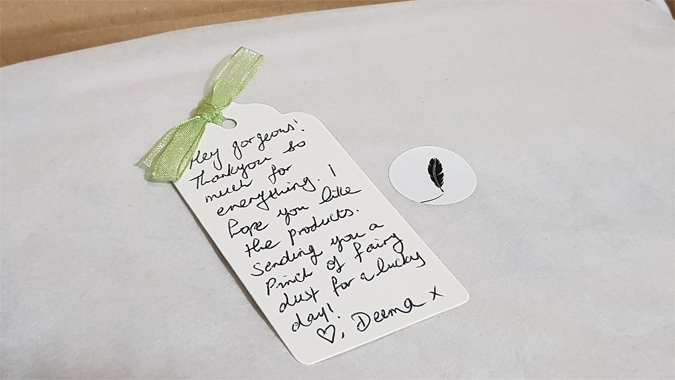 Hey gorgeous!
Thankyou so
much for
everything. I
hope you like
the products.
Sending you a
Pinch of fairy
dust for a lucky
day!
♡, Deema x